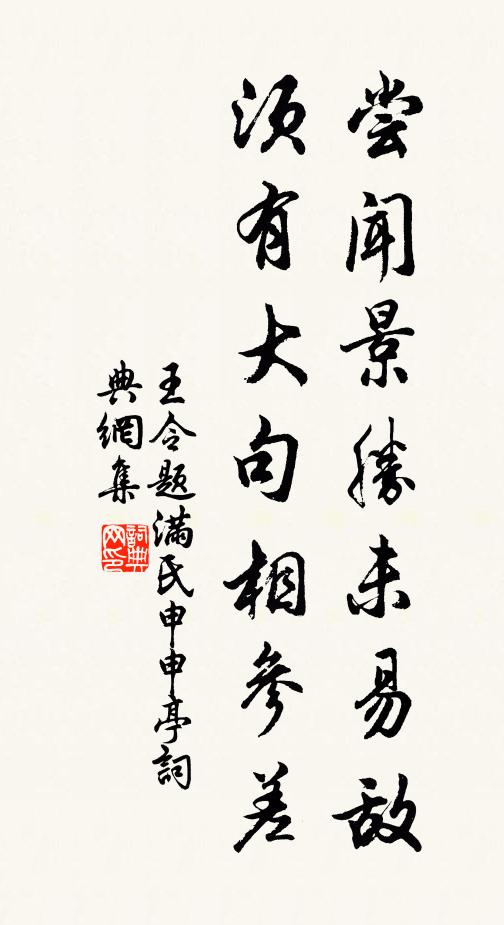 尝闻景勝未易敌
须有大句相参差
王令题满氏申申亭詞
典網集
詞典网印